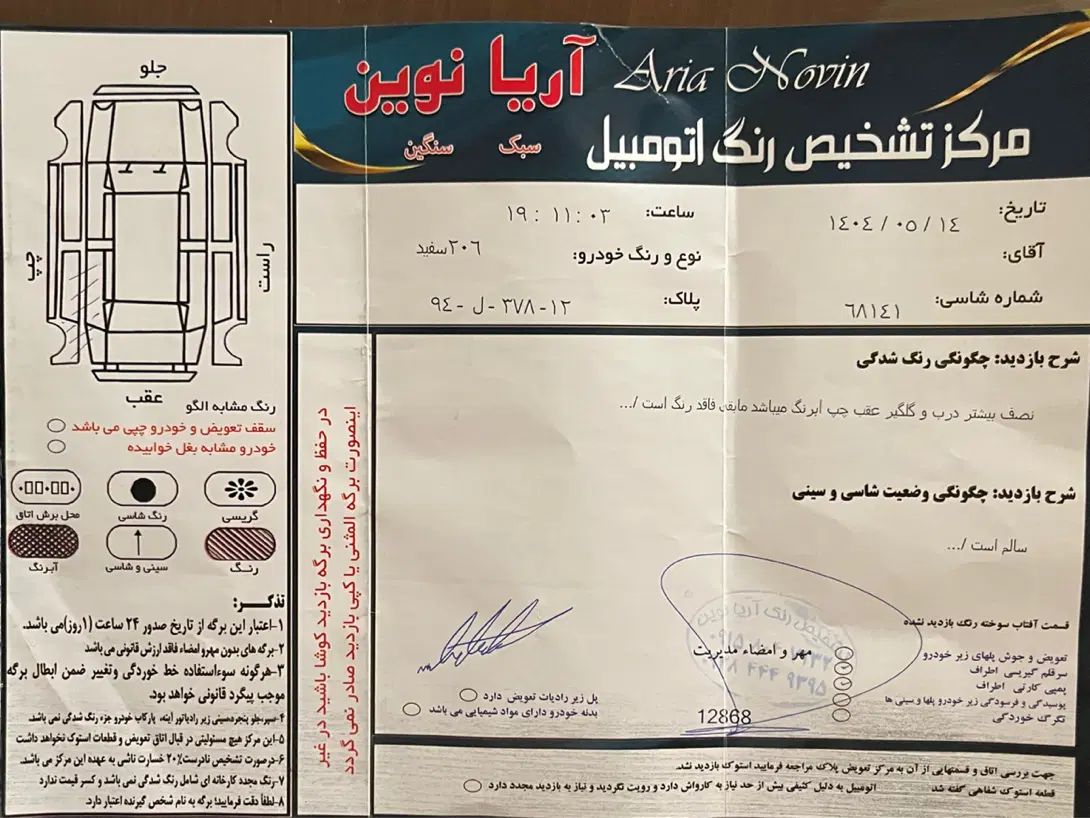 آریا نوین Aria Novin
سبک سنگین
مرکز تشخیص رنگ اتومبیل
تاریخ: ۱۴۰۴ / ۰۵ / ۱۴
ساعت: ۱۹ : ۱۱ : ۰۳
آقای:
نوع و رنگ خودرو: ۲۰۶ سفید
شماره شاسی: ۶۸۱۴۱
پلاک: ۹۴ - ل - ۳۷۸ - ۱۲
شرح بازدید: چگونگی رنگ شدگی
نصف بیشتر درب و گلگیر عقب چپ ابرنگ میباشد مابقی فاقد رنگ است /...
شرح بازدید: چگونگی وضعیت شاسی و سینی
سالم است /...
قسمت آفتاب سوخته رنگ بازدید نشده
تعویض و جوش پلهای زیر خودرو
سرقلم گیریسی اطراف
پمپی کارتی اطراف
پوسیدگی و فرسودگی زیر خودرو پلها و سینی ها
تگرگ خوردگی
مهر و امضاء مدیریت
12868
پل زیر رادیات تعویض دارد
بدنه خودرو دارای مواد شیمیایی می باشد
جهت بررسی اتاق و قسمتهایی از آن به مرکز تعویض پلاک مراجعه فرمایید استوک بازدید نشد.
قطعه استوک شفاهی گفته شد
اتومبیل به دلیل کثیفی بیش از حد نیاز به کارواش دارد و رویت نگردید و نیاز به بازدید مجدد دارد
در حفظ و نگهداری برگه بازدید کوشا باشید در غیر
اینصورت برگه المثنی یا کپی بازدید صادر نمی گردد
جلو
چپ
راست
عقب
رنگ مشابه الگو
سقف تعویض و خودرو چپی می باشد
خودرو مشابه بغل خوابیده
گریسی
رنگ شاسی
محل برش اتاق
رنگ
سینی و شاسی
آبرنگ
تذکر:
۱-اعتبار این برگه از تاریخ صدور ۲۴ ساعت (۱روز)می باشد.
۲-برگه های بدون مهر و امضاء فاقد ارزش قانونی می باشد
۳-هرگونه سوءاستفاده خط خوردگی وتغییر ضمن ابطال برگه
موجب پیگرد قانونی خواهد بود.
۴-سپر،جلو پنجره،سینی زیر رادیاتور آینه، پارکاب خودرو جزء رنگ شدگی نمی باشد.
۵-این مرکز هیچ مسئولیتی در قبال اتاق تعویض و قطعات استوک نخواهد داشت
۶-درصورت تشخیص نادرست ۲۰٪ خسارت ناشی به عهده این مرکز می باشد.
۷-رنگ مجدد کارخانه ای شامل رنگ شدگی نمی باشد و کسر قیمت ندارد
۸-لطفاً دقت فرمایید؛ برگه به نام شخص گیرنده اعتبار دارد.